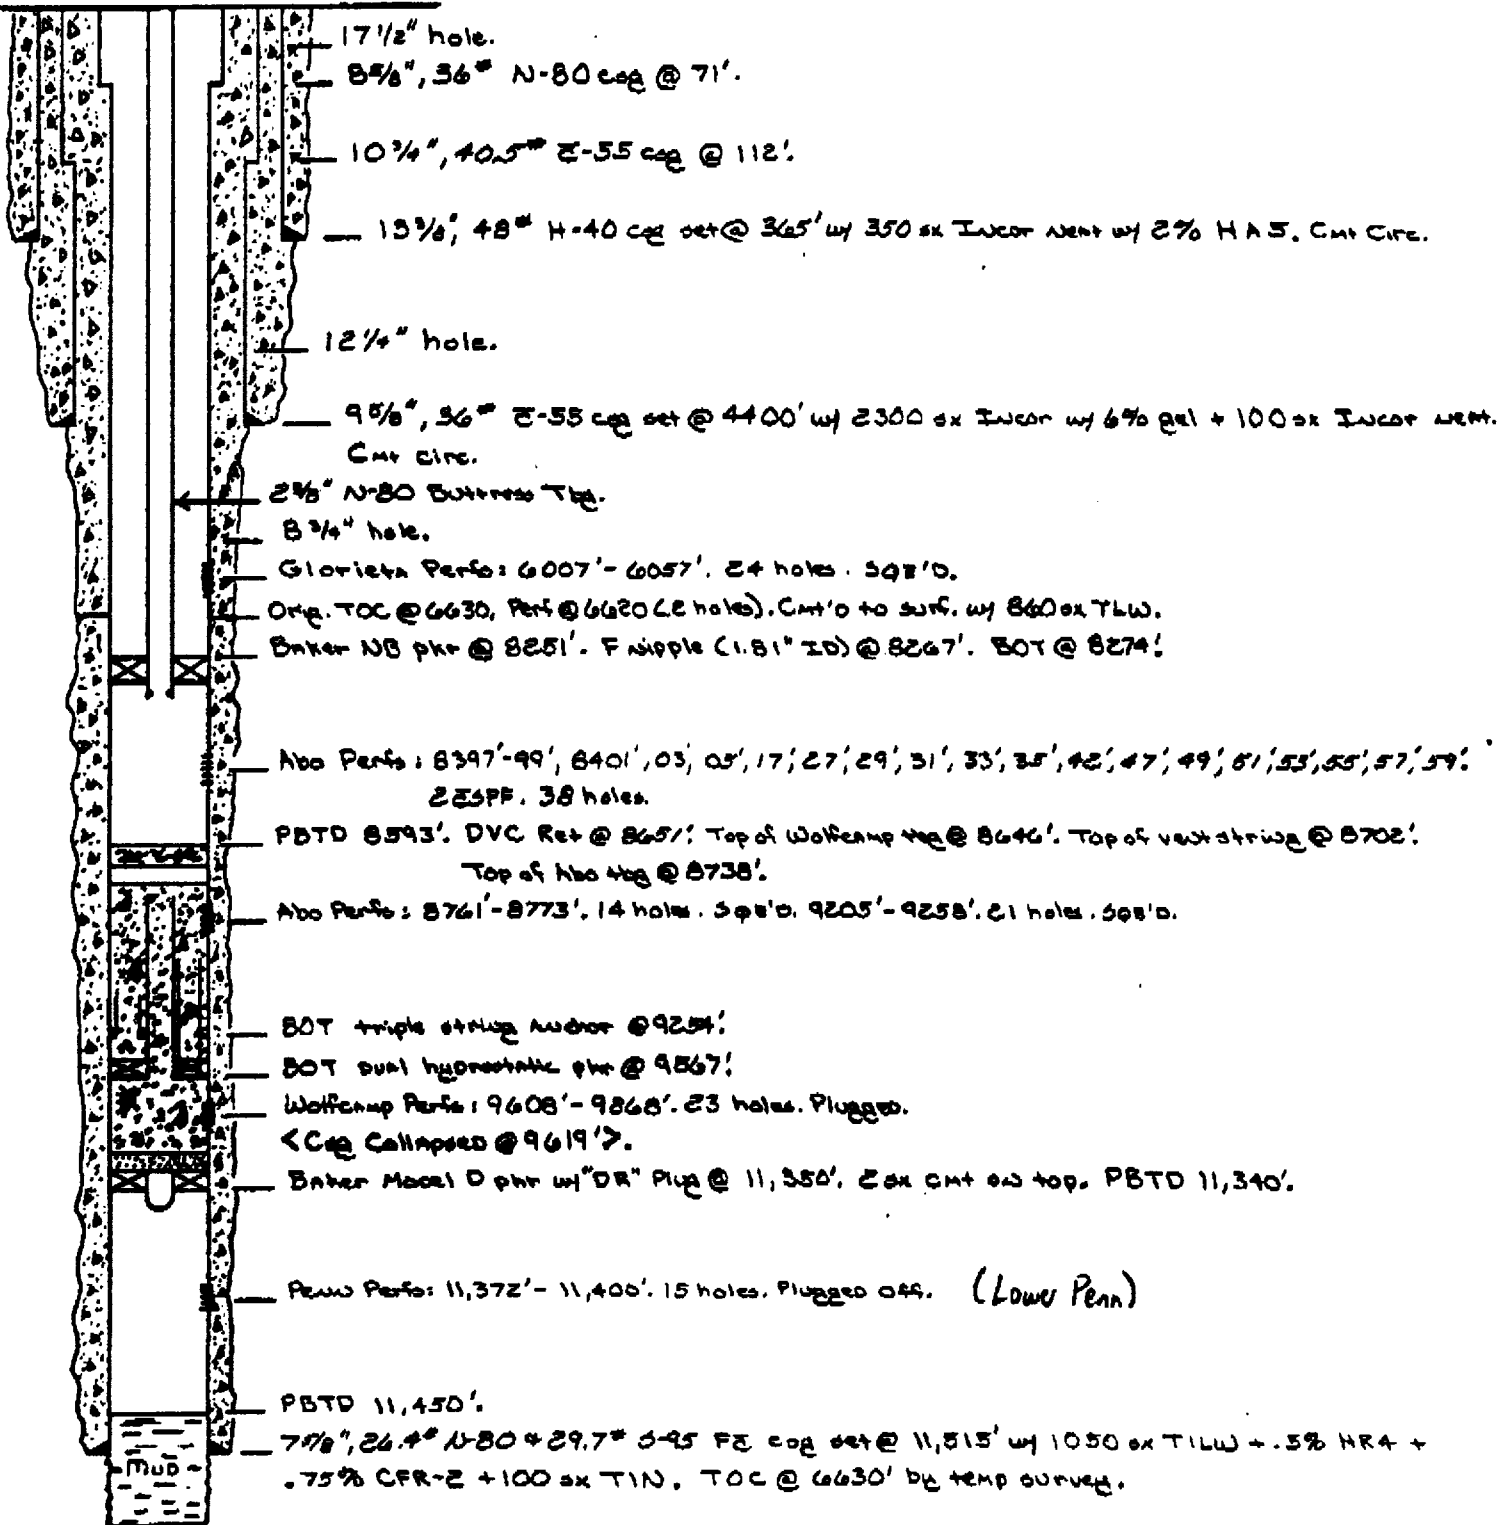 17 1/2" hole.
8 5/8", 36# N-80 csg @ 71'.
10 3/4", 40.5# J-55 csg @ 112'.
13 3/8", 48# H-40 csg set @ 365' w/ 350 sx Incor Neat w/ 2% HA5. Cmt Circ.
12 1/4" hole.
9 5/8", 36# J-55 csg set @ 4400' w/ 2300 sx Incor w/ 6% gel + 100 sx Incor neat.
Cmt circ.
2 3/8" N-80 Buttress Tbg.
8 3/4" hole.
Glorieta Perfs: 6007'-6057'. 24 holes. SQZ'D.
Orig. TOC @ 6630, Perf @ 6620 (2 holes). Cmt'd to surf. w/ 860 sx TLW.
Baker NB pkr @ 8251'. F nipple (1.81" ID) @ 8267'. BOT @ 8274'.
Abo Perfs: 8397'-99', 8401', 03', 05', 17', 27', 29', 31', 33', 35', 42', 47', 49', 51', 53', 55', 57', 59'.
2JSPF. 38 holes.
PBTD 8593'. DVC Ret @ 8651'. Top of Wolfcamp tbg @ 8646'. Top of vent string @ 8702'.
Top of Abo tbg @ 8738'.
Abo Perfs: 8761'-8773'. 14 holes. SQZ'D. 9205'-9258'. 21 holes. SQZ'D.
BOT triple string Anchor @ 9254'.
BOT dual hydrostatic pkr @ 9567'.
Wolfcamp Perfs: 9608'-9868'. 23 holes. Plugged.
<Csg Collapsed @ 9619'>.
Baker Model D pkr w/ "DR" Plug @ 11,350'. 2 sx cmt on top. PBTD 11,340'.
Penn Perfs: 11,372'-11,400'. 15 holes. Plugged off. (Lower Penn)
PBTD 11,450'.
7 5/8", 26.4# N-80 & 29.7# S-95 FJ csg set @ 11,515' w/ 1050 sx TILW + .5% HR4 +
.75% CFR-2 + 100 sx TIN. TOC @ 6630' by temp survey.
MUD